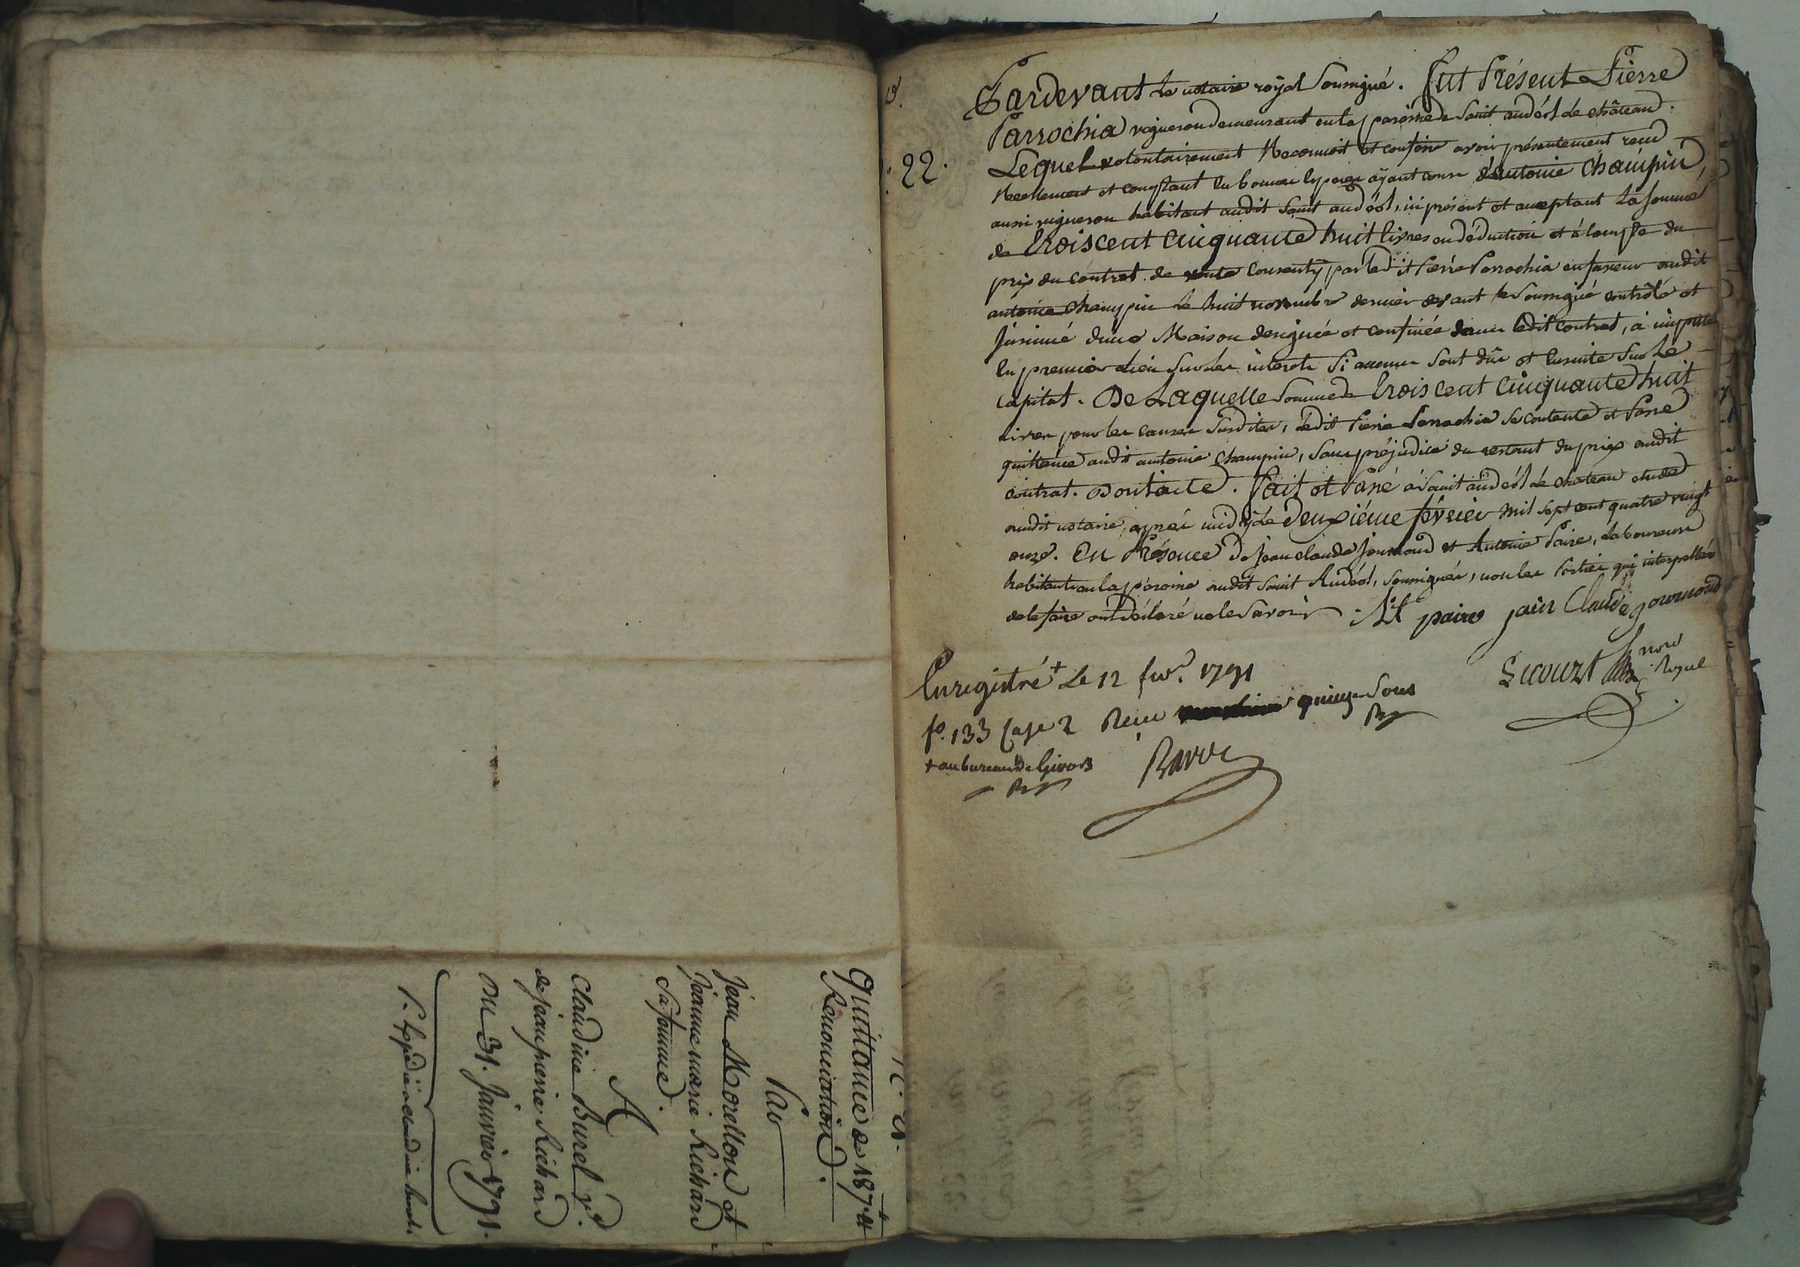 Quittance de 187.₶ et
Renonciation.
Par
Jean Morellon et
Jeanne marie Richard
Sa femme.
A
Claudine Burel v.e
de jean pierre Richard
Du 31. Janvier 1791.
22.
Pardevant Le notaire royal Soussigné. fut Présent Pierre
Parrochia vigneron demeurant en la paroisse de Saint andéol de château.
Lequel volontairement Reconnoit et confesse avoir présentement recu
Reellement et comptant En bonnes Especes ayant cours d'antoine Champin,
aussi vigneron habitant audit Saint andéol, ici présent et acceptant La somme
de trois cent cinquante huit livres en déduction et à compte du
prix du contrat de vente Consenty par led it Pierre Parrochia en faveur audit
antoine champin Le huit novembre dernier devant le Soussigné controlé et
Jnsinué d'une Maison designée et confinée dans ledit contrat, à imputer
En premier Lieu Sur les interets Si aucuns Sont dûs et Ensuite Sur Le
capital. De Laquelle Somme de trois cent cinquante huit
livres pour les causes Susdites, ledit Pierre Parrochia Se contente et Passe
quittance audit antoine champin, Sans préjudice du restant du prix audit
contrat. Dont acte. Fait et Passé à Saint andéol de château etude
audit notaire, après midy Le deuxiéme février mil sept cent quatre vingt
onze. En Présence de Jean claude Journoud et Antoine Paire, Laboureurs
habitant en la paroisse audit Saint Andéol, soussignés, non les Parties qui interpellés
de le faire ont déclaré ne le Savoir. A.t paire jain Claude journoud
Enregistré + Le 12 fev.r 1791
f.o 133 Case 2 Recu quinze Sous
+ au bureau de Givors